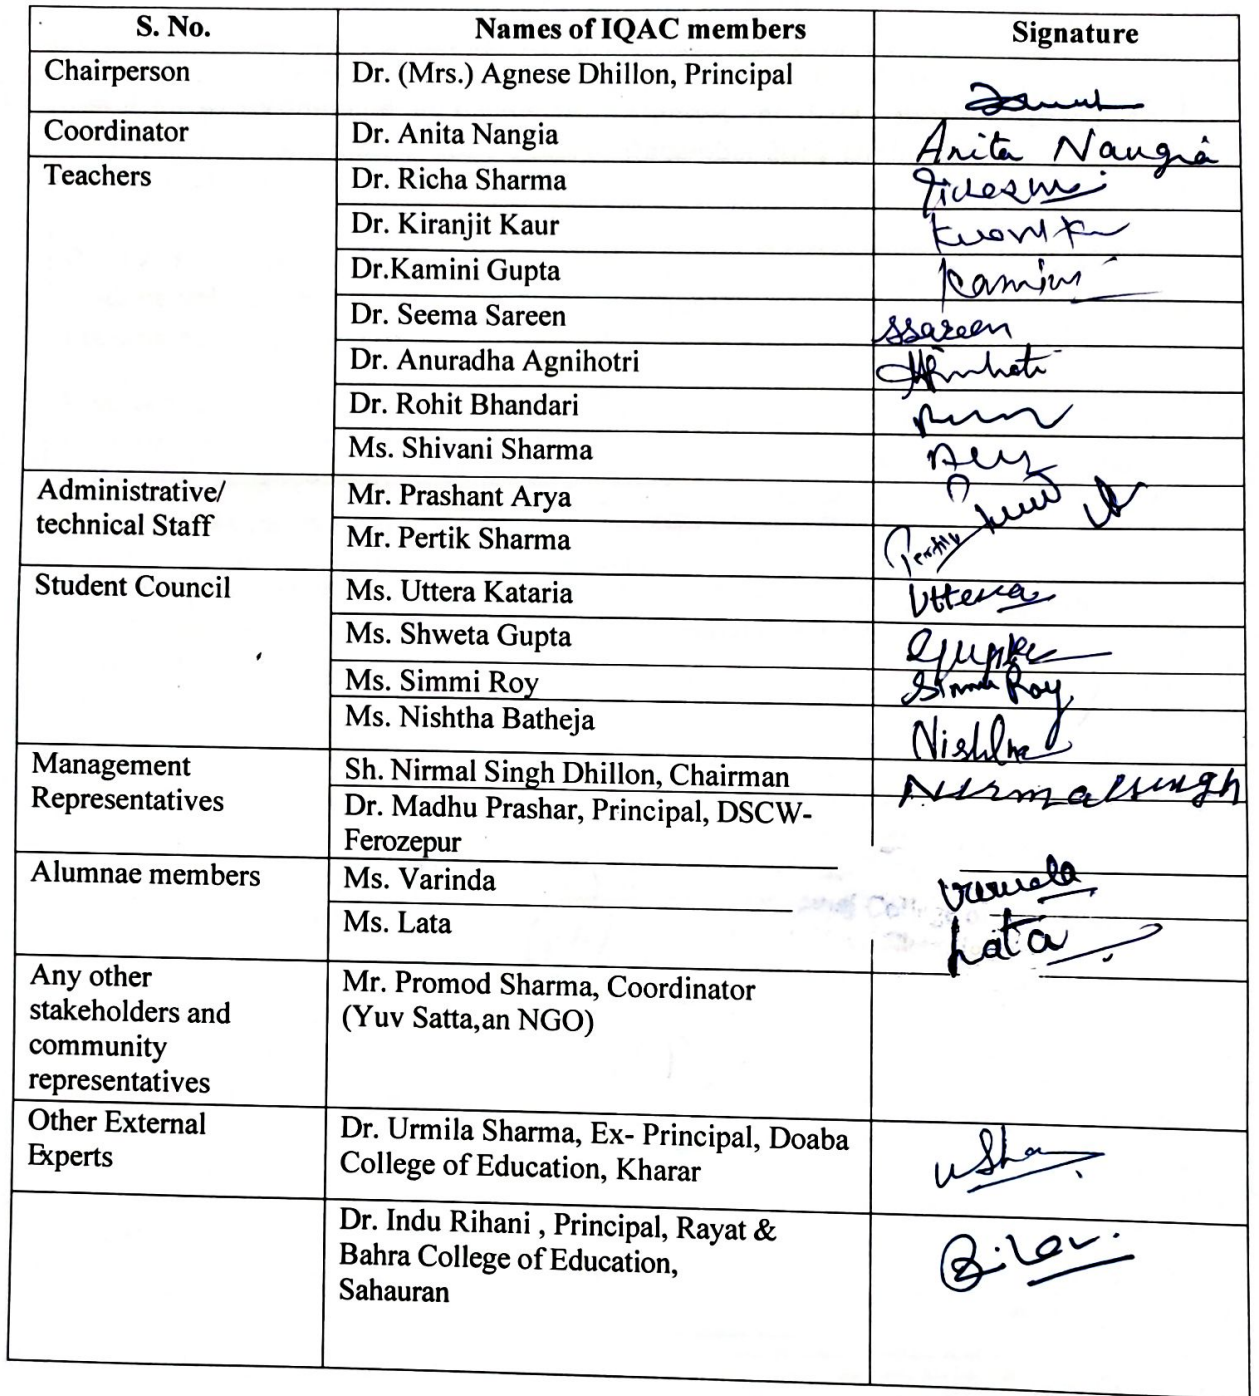 S. No. Names of IQAC members Signature
Chairperson Dr. (Mrs.) Agnese Dhillon, Principal
Coordinator Dr. Anita Nangia Anita Nangia
Teachers Dr. Richa Sharma
Dr. Kiranjit Kaur
Dr.Kamini Gupta Kamini
Dr. Seema Sareen SSareen
Dr. Anuradha Agnihotri
Dr. Rohit Bhandari
Ms. Shivani Sharma
Administrative/
technical Staff
Mr. Prashant Arya
Mr. Pertik Sharma
Student Council Ms. Uttera Kataria Uttera
Ms. Shweta Gupta Gupta
Ms. Simmi Roy Simmi Roy
Ms. Nishtha Batheja Nishtha
Management
Representatives
Sh. Nirmal Singh Dhillon, Chairman Nirmalsingh
Dr. Madhu Prashar, Principal, DSCW-
Ferozepur
Alumnae members Ms. Varinda
Ms. Lata Lata
Any other
stakeholders and
community
representatives
Mr. Promod Sharma, Coordinator
(Yuv Satta,an NGO)
Other External
Experts
Dr. Urmila Sharma, Ex- Principal, Doaba
College of Education, Kharar
Dr. Indu Rihani , Principal, Rayat &
Bahra College of Education,
Sahauran